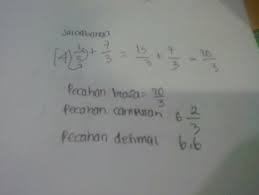 Jawabannya
[4) 1/3 + 7/3 = 13/3 + 7/3 = 20/3
Pecahan biasa = 20/3
Pecahan campuran 6 2/3
Pecahan desimal 6,6